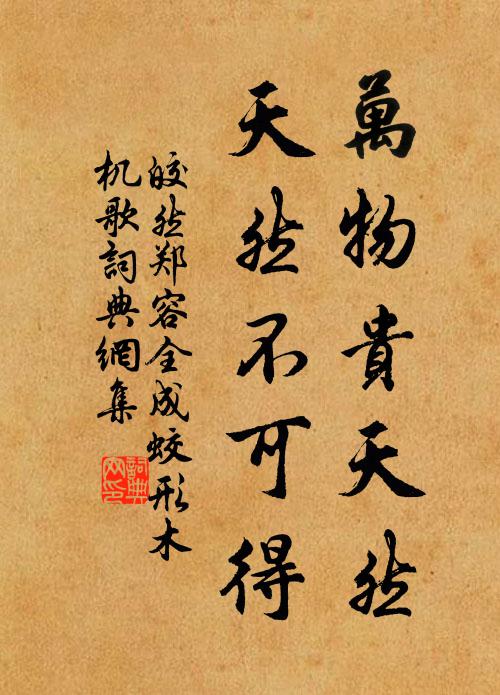 萬物貴天然
天然不可得
皎然郑容全成蛟形木
机歌詞典網集
詞典
网印